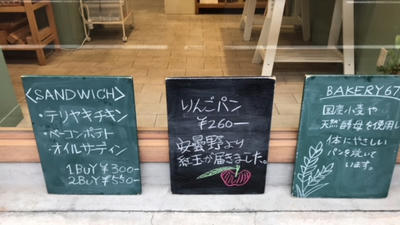 〈SANDWICH〉
・テリヤキチキン
・ベーコンポテト
・オイルサーディン
1BUY ¥300-
2BUY ¥550-
りんごパン
¥260-
安曇野より
紅玉が届きました。
BAKERY 67
国産小麦や
天然酵母を使用し
体にやさしい
パンを焼いて
います。